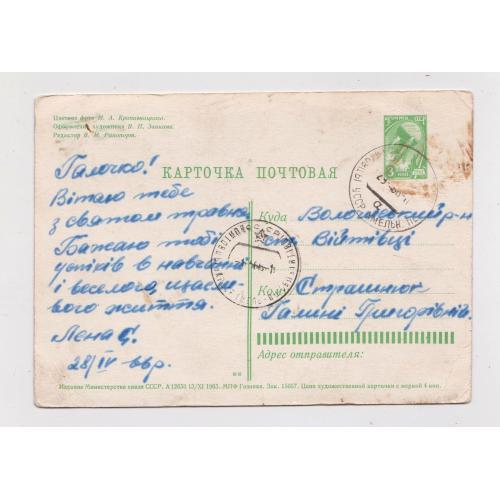 Цветное фото Н. А. Крапивницкого.
Оформление художника В. П. Завьялова.
Редактор В. М. Рапопорт.
КАРТОЧКА ПОЧТОВАЯ
Галочко!
Вітаю тебе
з святом травня
Бажаю тобі
успіхів в навчанні
і веселого, щасли-
вого життя.
Лена С.
28/IV-66р.
Куда Волочиський р-н
Війтівці
Кому Страшнюк
Галині Григорівні
Адрес отправителя:
Издание Министерства связи СССР. А 12650 13/XI 1965. МПФ Гознака. Зак. 15057. Цена художественной карточки с маркой 4 коп.